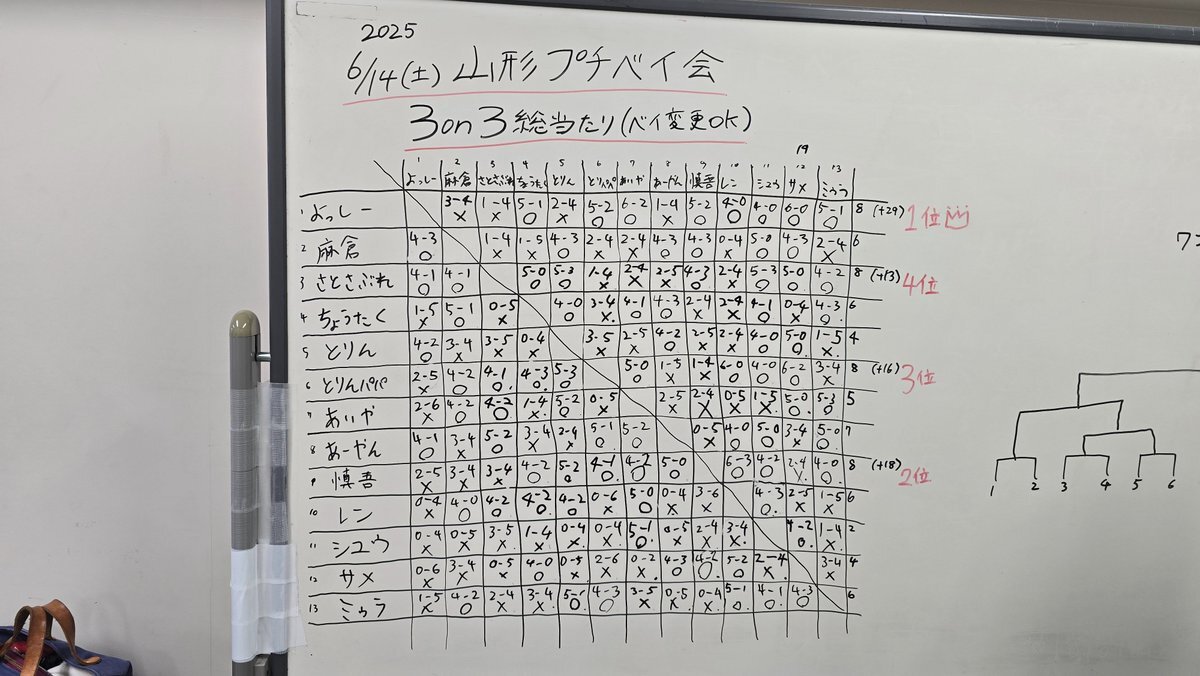 2025
6/14(土) 山形プチベイ会
3on3 総当たり(ベイ変更OK)
19
1 2 3 4 5 6 7 8 9 10 11 12 13
よっしー 麻倉 さとさぶれ ちょうたく とりん とりんパパ あいや あーやん 慎吾 レン シュウ サメ ミゥラ
1 よっしー 3-4 × 1-4 × 5-1 ○ 2-4 × 5-2 ○ 6-2 ○ 1-4 × 5-2 ○ 4-0 ○ 4-0 ○ 6-0 ○ 5-1 ○ 8 (+29) 1位
2 麻倉 4-3 ○ 1-4 × 1-5 × 4-3 ○ 2-4 × 2-4 × 4-3 ○ 4-3 ○ 0-4 × 5-0 ○ 4-3 ○ 2-4 × 6
3 さとさぶれ 4-1 ○ 4-1 ○ 5-0 ○ 5-3 ○ 1-4 × 2-4 × 2-5 × 4-3 ○ 2-4 × 5-3 ○ 5-0 ○ 4-2 ○ 8 (+13) 4位
4 ちょうたく 1-5 × 5-1 ○ 0-5 × 4-0 ○ 3-4 × 4-1 ○ 4-3 ○ 2-4 × 2-4 × 4-1 ○ 0-4 × 4-3 ○ 6
5 とりん 4-2 ○ 3-4 × 3-5 × 0-4 × 3-5 × 2-5 × 4-2 ○ 2-5 × 2-4 × 4-0 ○ 5-0 ○ 1-5 × 4
6 とりんパパ 2-5 × 4-2 ○ 4-1 ○ 4-3 ○ 5-3 ○ 5-0 ○ 1-5 × 1-4 × 6-0 ○ 4-0 ○ 6-2 ○ 3-4 × 8 (+16) 3位
7 あいや 2-6 × 4-2 ○ 4-2 ○ 1-4 × 5-2 ○ 0-5 × 2-5 × 2-4 × 0-5 × 1-5 × 5-0 ○ 5-3 ○ 5
8 あーやん 4-1 ○ 3-4 × 5-2 ○ 3-4 × 2-4 × 5-1 ○ 5-2 ○ 0-5 × 4-0 ○ 5-0 ○ 3-4 × 5-0 ○ 7
9 慎吾 2-5 × 3-4 × 3-4 × 4-2 ○ 5-2 ○ 4-1 ○ 4-2 ○ 5-0 ○ 6-3 ○ 4-2 ○ 2-4 × 4-0 ○ 8 (+18) 2位
10 レン 0-4 × 4-0 ○ 4-2 ○ 4-2 ○ 4-2 ○ 0-6 × 5-0 ○ 0-4 × 3-6 × 4-3 ○ 2-5 × 1-5 × 6
11 シュウ 0-4 × 0-5 × 3-5 × 1-4 × 0-4 × 0-4 × 5-1 ○ 0-5 × 2-4 × 3-4 × 4-2 ○ 1-4 × 2
12 サメ 0-6 × 3-4 × 0-5 × 4-0 ○ 0-5 × 2-6 × 0-2 × 4-3 ○ 4-2 ○ 5-2 ○ 2-4 × 3-4 × 4
13 ミゥラ 1-5 × 4-2 ○ 2-4 × 3-4 × 5-1 ○ 4-3 ○ 3-5 × 0-5 × 0-4 × 5-1 ○ 4-1 ○ 4-3 ○ 6
1 2 3 4 5 6